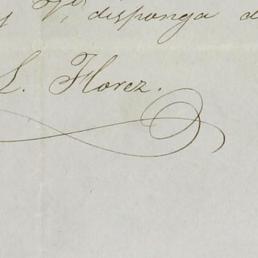 y V. disponga d
L. Florez.